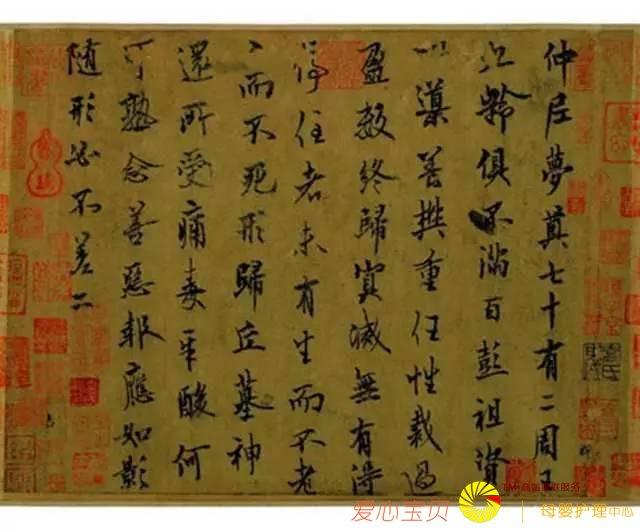 仲尼夢奠七十有二周王
九齡俱不滿百彭祖資
以導養樊重任性裁過
盈數終歸冥滅無有得
停住者未有生而不老
老而不死形歸丘墓神
還所受痛毒辛酸何
可熟念善惡報應如影
隨形必不差二
爱心宝贝
母婴护理中心